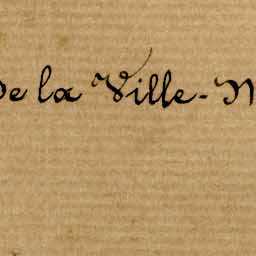 De la Ville-N